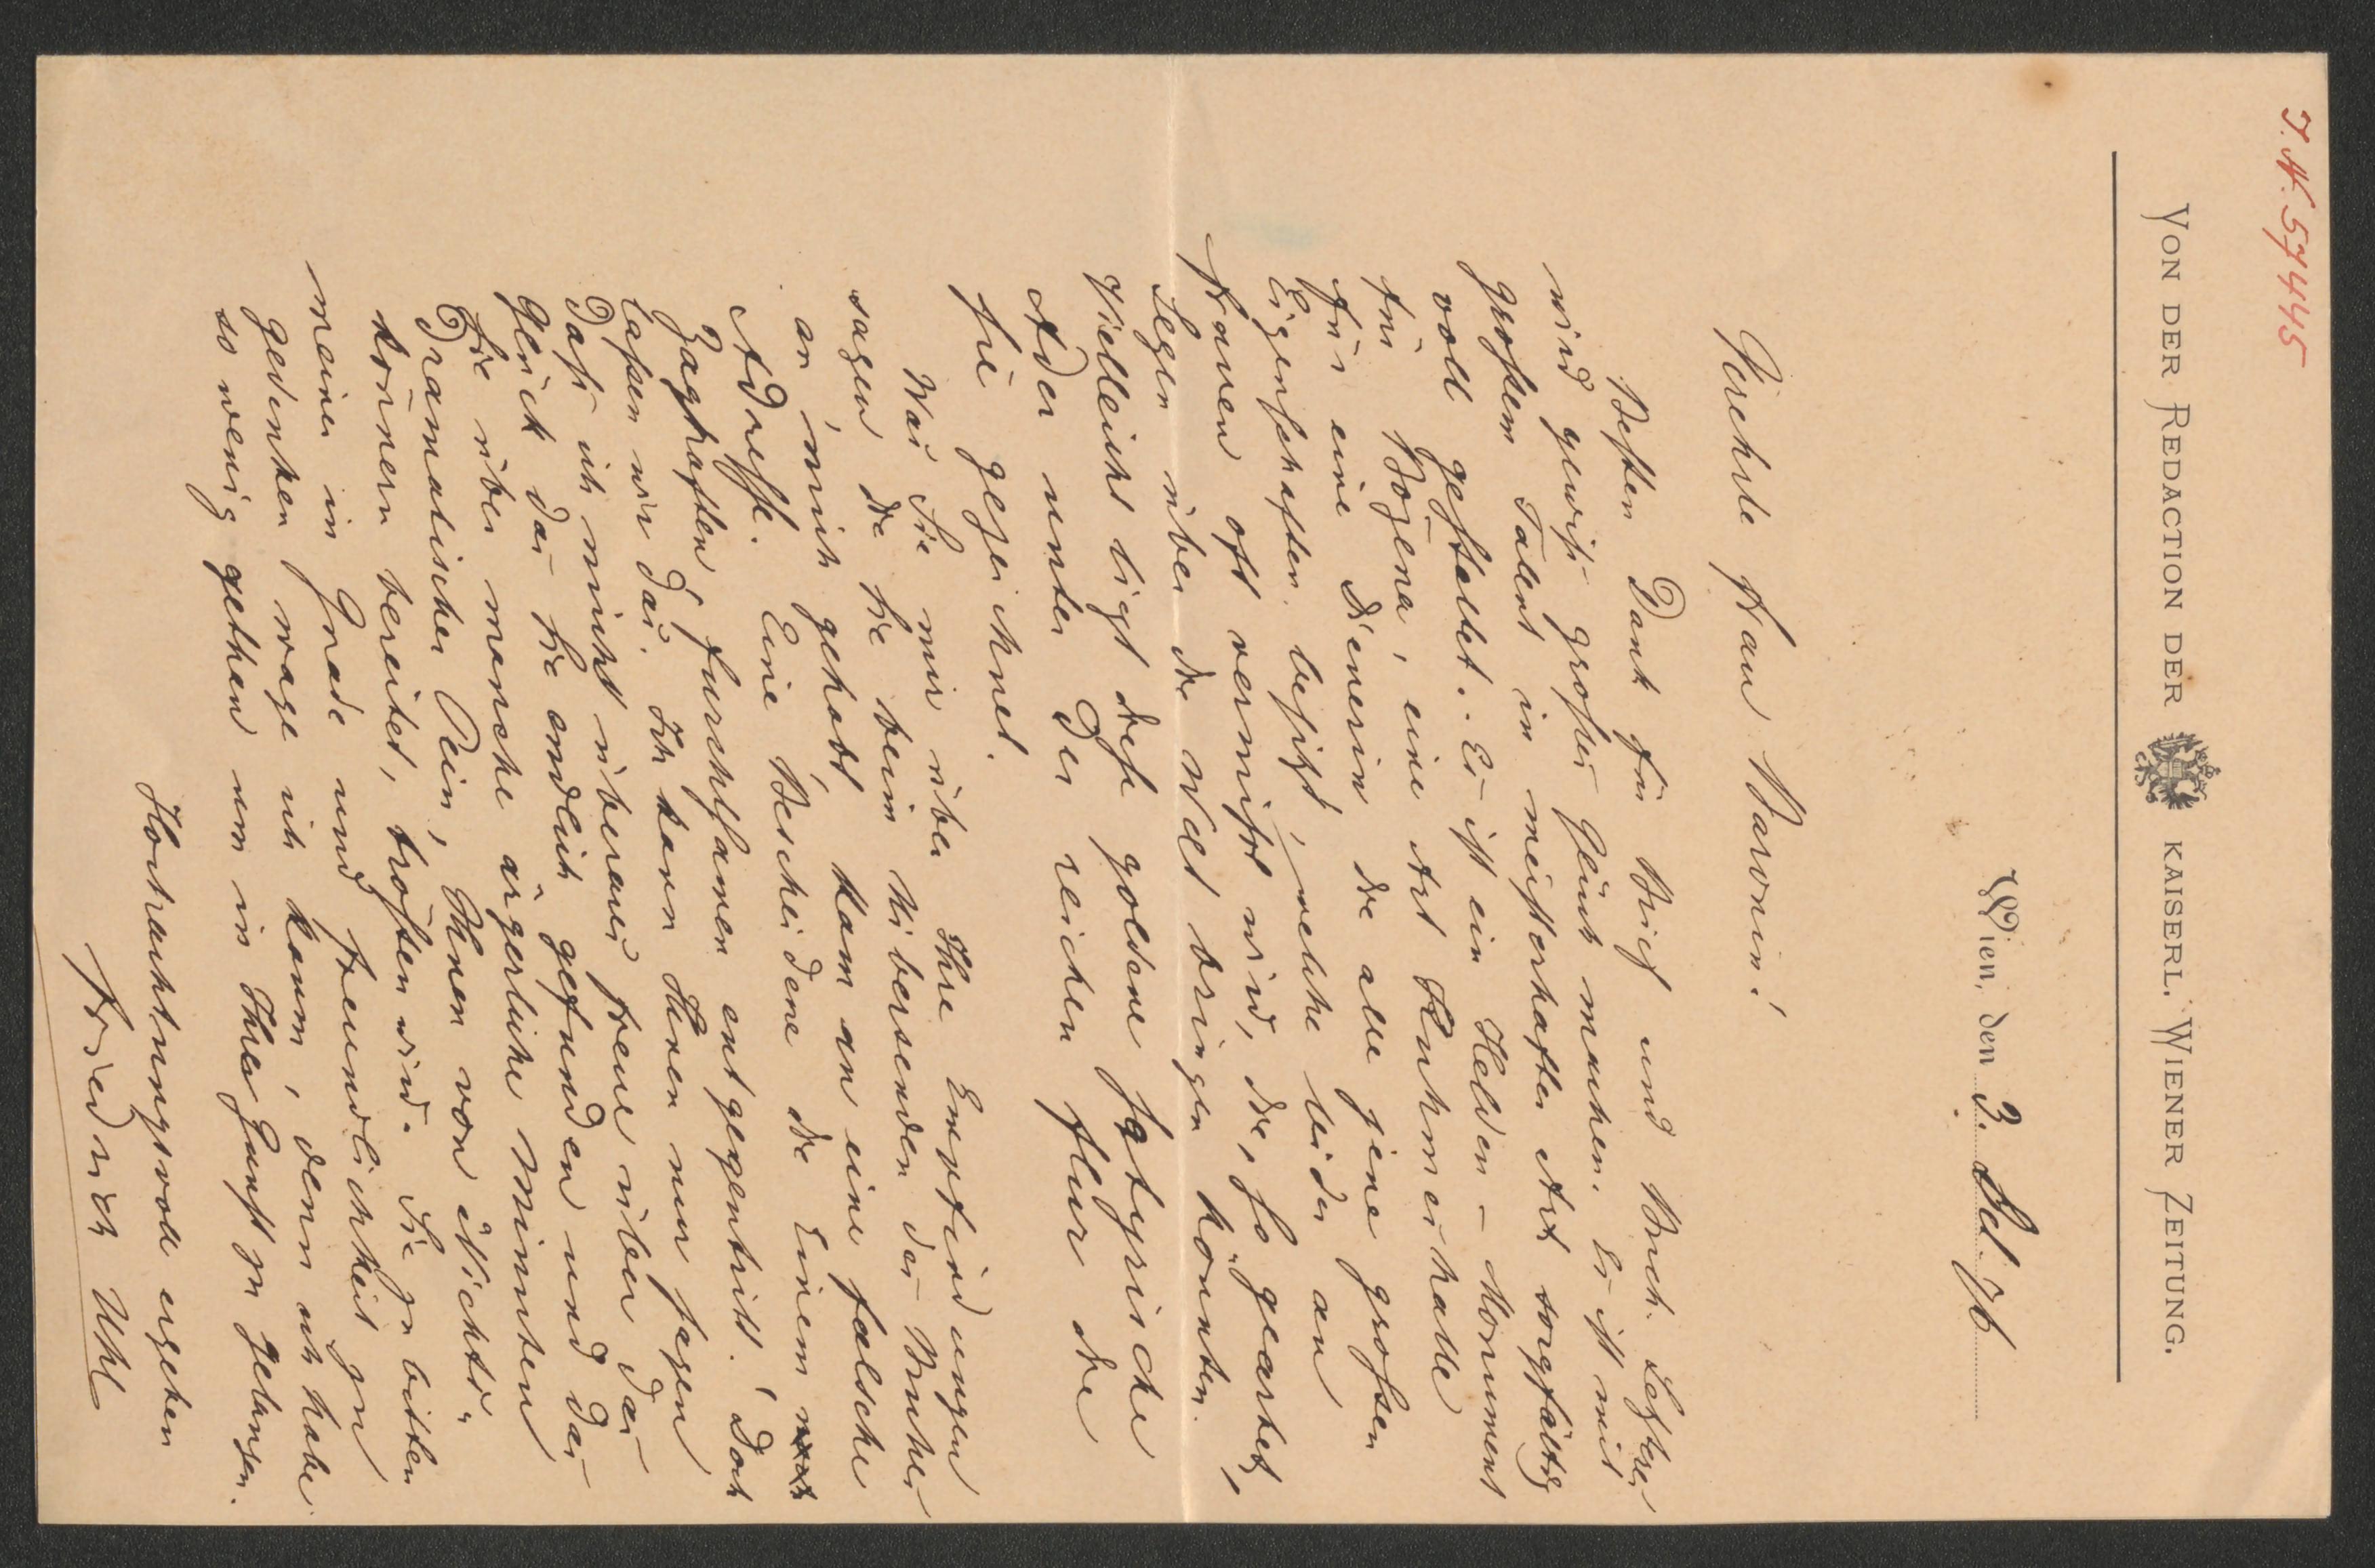 I.N. 57445
VON DER REDACTION DER KAISERL. WIENER ZEITUNG.
Wien, den 3. Feb. 76
Verehrte Frau Baronin!
Besten Dank für Brief und Buch. Letzteres
wird gewiß großes Glück machen. Es ist mit
großem Talent in meisterhafter Art sorgfältig
voll gestaltet. Es ist ein Helden-Monument
für Bozena, eine Art Ruhmeshalle
für eine Dienerin die alle jene großen
Eigenschaften besitzt, welche leider an
Frauen oft vermißt wird, die, so geartet,
Segen über die Welt bringen könnten.
Vielleicht ligt diese goldene satyrische
Ader unter der reichen Flur die
Sie gezeichnet.
Was Sie mir über Ihre Empfindungen
sagen die Sie beim Uibersenden des Buches
an mich gehabt, kam an eine falsche
Adresse. Eine Bescheidene die Einem
Zaghaften furchtsamen entgegentritt! Doch
lassen wir das. Ich kann Ihnen nur sagen
daß ich mich überaus freue über das
Glück das Sie endlich gefunden und das
Sie über manche ärgerliche Minuten
Dramatischer Pein, Ihnen von Nichts-
könnern bereitet, trösten wird. Sie zu bitten
meiner in Gnade und Freundlichkeit zu
gedenken wage ich kaum, denn ich habe
so wenig gethan um in Ihre Gunst zu gelangen.
Hochachtungsvoll ergeben
Friedrich Uhl